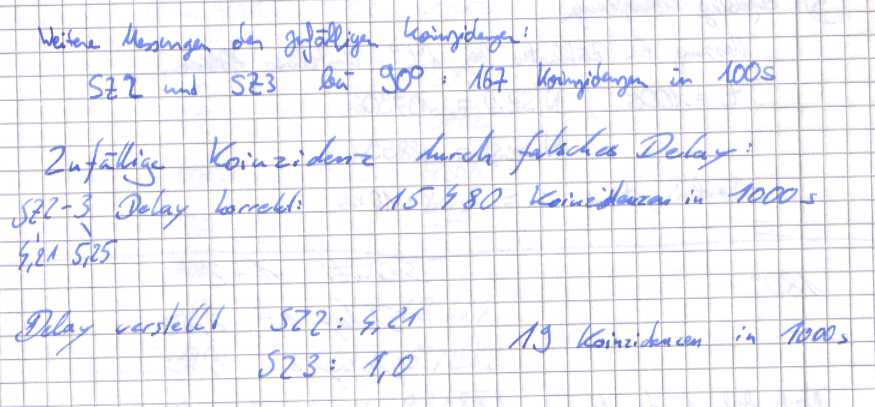 Weitere Messungen der zufälligen Koinzidenzen:
SZ2 und SZ3 bei 90° : 167 Koinzidenzen in 100s
Zufällige Koinzidenz durch falsches Delay:
SZ2-3 Delay korrekt: 15 480 Koinzidenzen in 1000s
4,21 5,25
Delay verstellt SZ2: 4,21
19 Koinzidenzen in 1000s
SZ3: 1,0